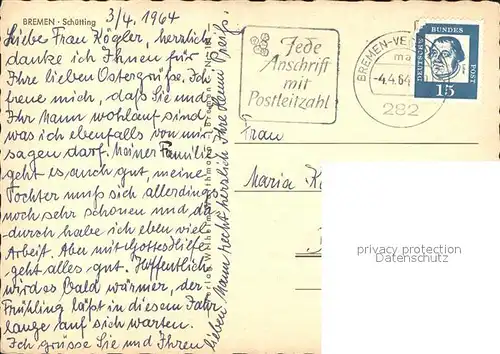 BREMEN - Schütting
3/4. 1964
Liebe Frau Kögler, herzlich
danke ich Ihnen für
Ihre lieben Ostergrüße. Ich
freue mich, daß Sie und
Ihr Mann wohlauf sind
was ich ebenfalls von mir
sagen darf. Meiner Familie
geht es auch gut, meine
Tochter muß sich allerdings
noch sehr schonen und da-
durch habe ich eben viel
Arbeit. Aber mit Gotteshilfe
geht alles gut. Hoffentlich
wird es bald wärmer, der
Frühling läßt in diesem Jahr
lange auf sich warten.
Ich grüsse Sie und Ihren
lieben Mann recht herzlich Ihre Henni Preiß.
Jede
Anschrift
mit
Postleitzahl
BREMEN-VE
-4.4.64
282
DEUTSCHE BUNDES POST
15
Frau
Maria
privacy protection
Datenschutz